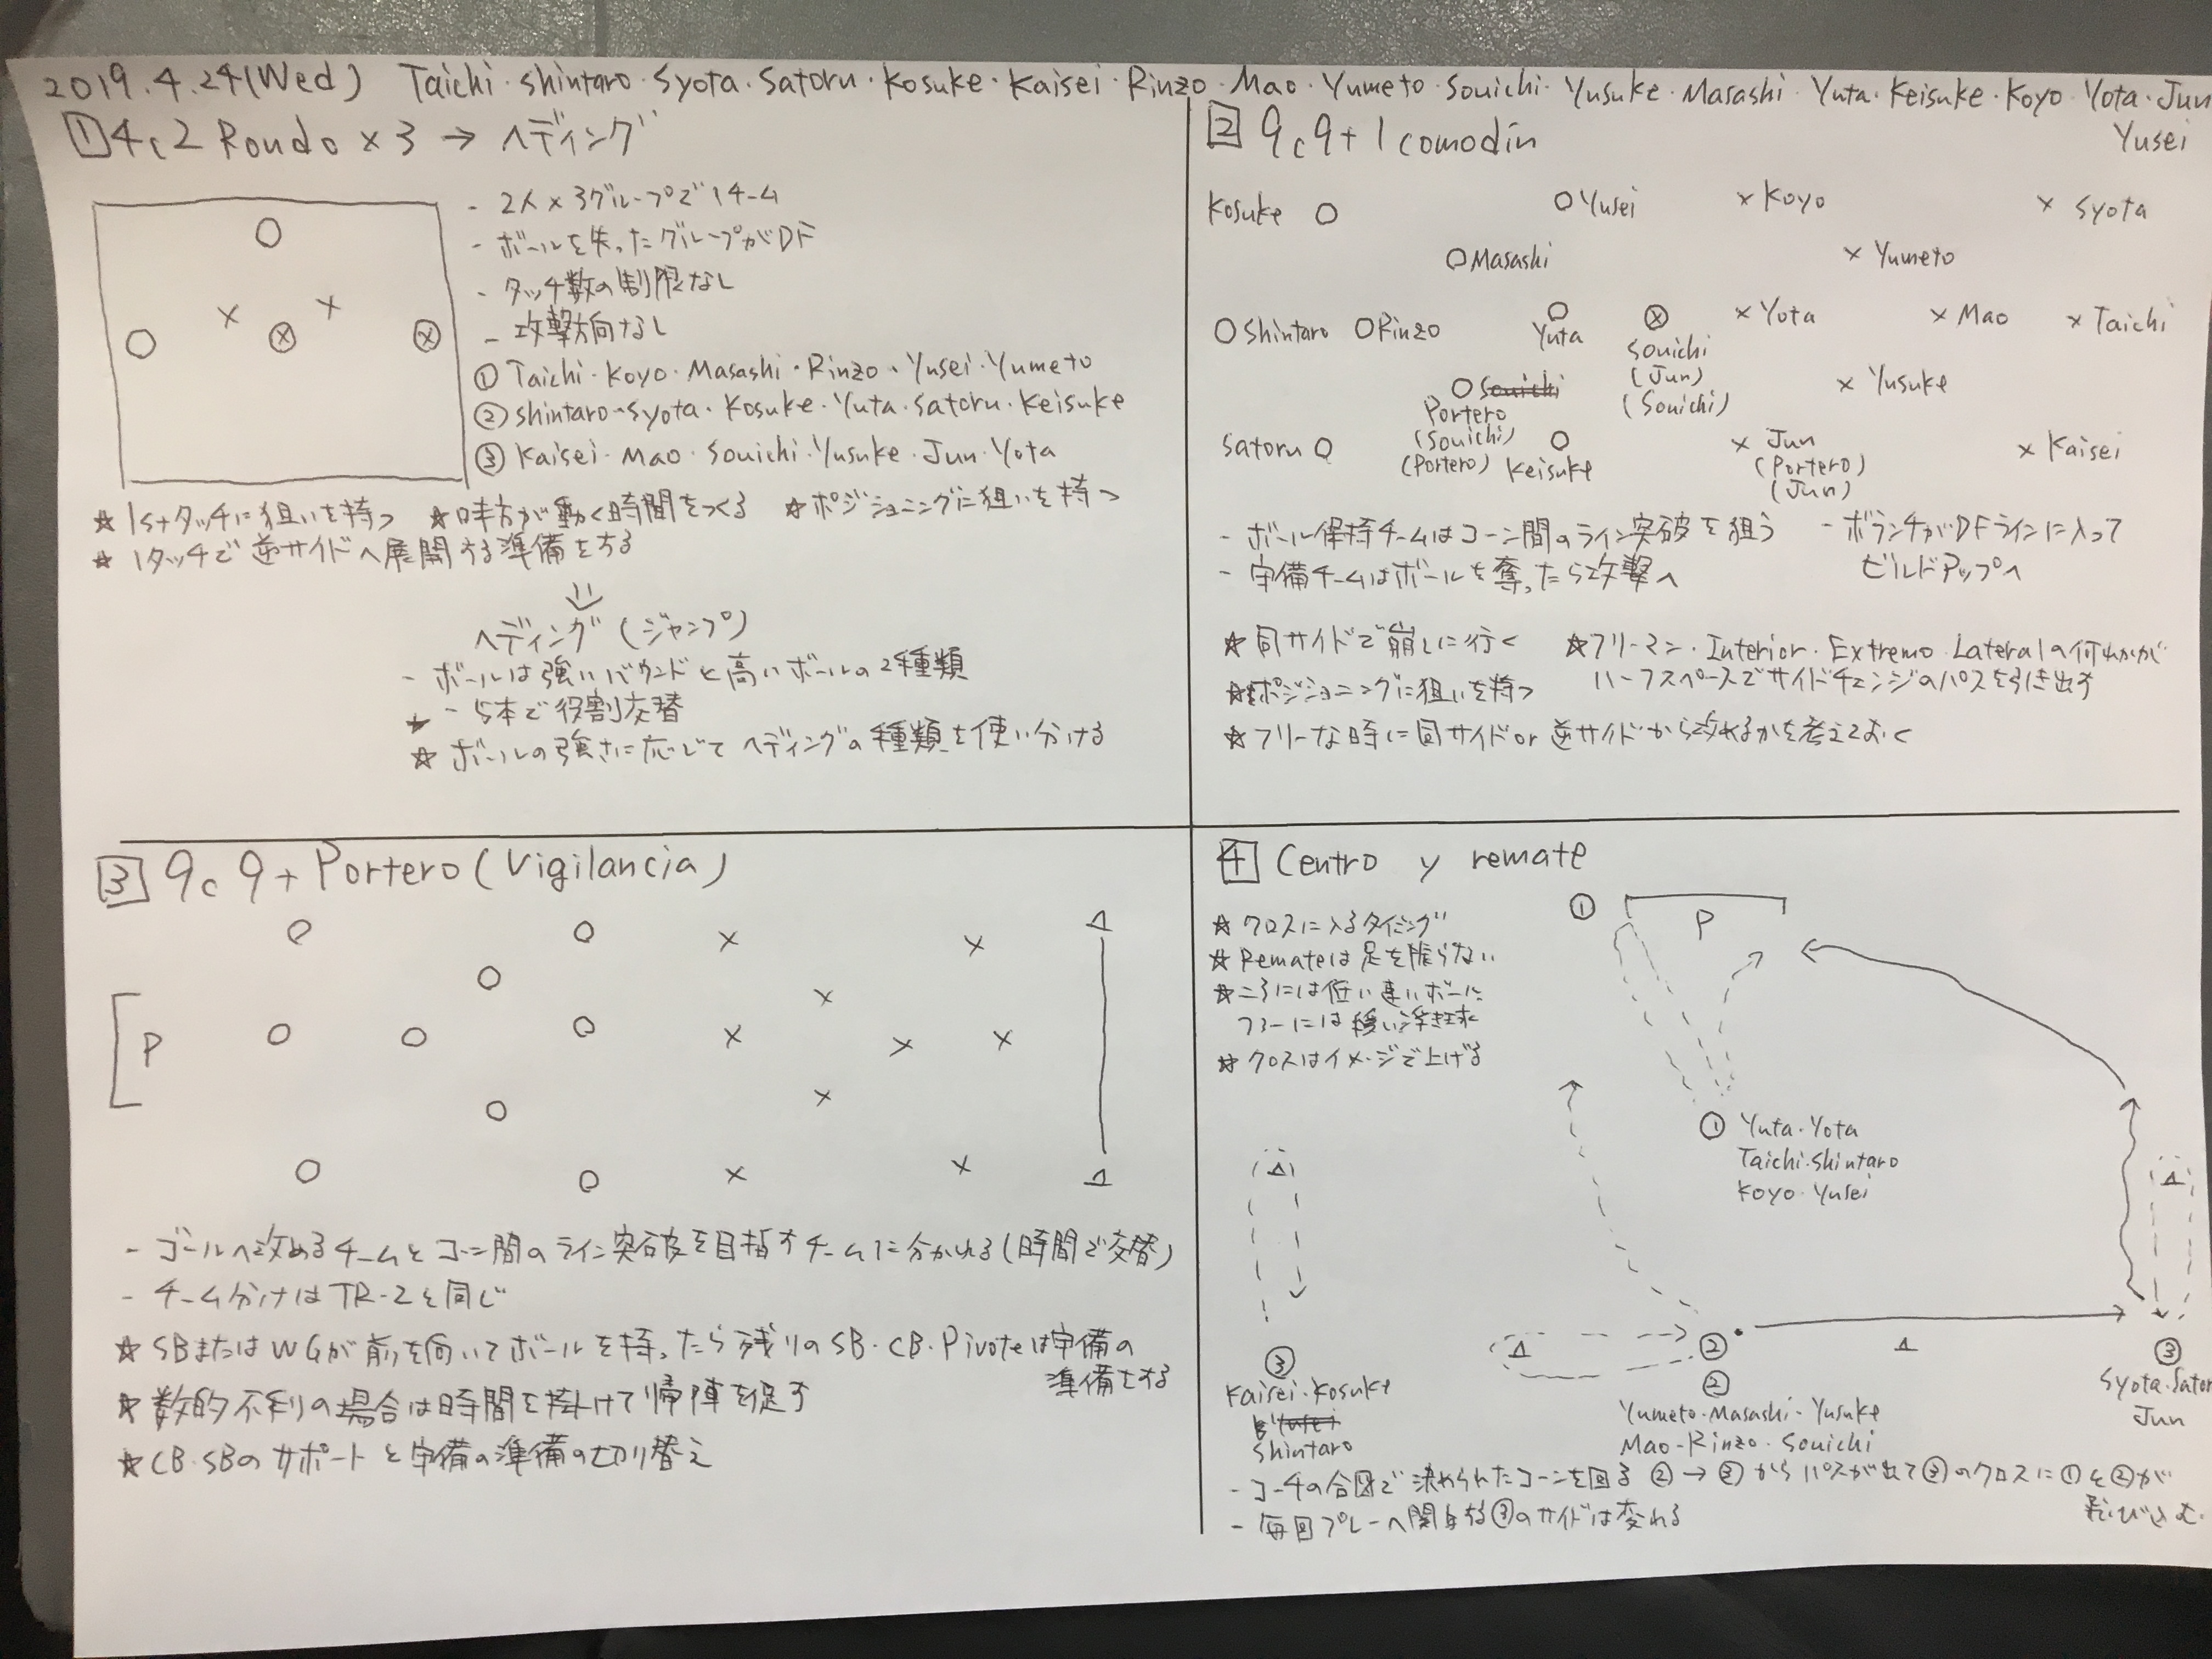 2019.4.24(Wed) Taichi・Shintaro・Syota・Satoru・Kosuke・Kaisei・Rinzo・Mao・Yumeto・Souichi・Yusuke・Masashi・Yuta・Keisuke・Koyo・Yota・Jun
Yusei
1 4c2 Rondo×3 → ヘディング
- 2人×3グループで1チーム
- ボールを失ったグループがDF
- タッチ数の制限なし
- 攻撃方向なし
① Taichi・Koyo・Masashi・Rinzo・Yusei・Yumeto
② Shintaro・Syota・Kosuke・Yuta・Satoru・Keisuke
③ Kaisei・Mao・Souichi・Yusuke・Jun・Yota
☆ 1stタッチに狙いを持つ ☆味方が動く時間をつくる ☆ポジショニングに狙いを持つ
☆ 1タッチで逆サイドへ展開する準備をする
ヘディング(ジャンプ)
- ボールは強いバウンドと高いボールの2種類
- 5本で役割交替
☆ ボールの強さに応じてヘディングの種類を使い分ける
2 9c9+1comodín
Kosuke ○ ○Yusei × Koyo × Syota
○Masashi × Yumeto
○Shintaro ○Rinzo ○ Yuta ⊗ × Yota × Mao × Taichi
Souichi
(Jun)
(Souichi)
○Souichi × Yusuke
Portero
(Souichi)
(Portero)
Satoru ○ ○ Keisuke × Jun × Kaisei
(Portero)
(Jun)
- ボール保持チームはコーン間のライン突破を狙う
- 守備チームはボールを奪ったら攻撃へ
- ボランチがDFラインに入って
ビルドアップへ
☆ 同サイドで崩しに行く
☆フリーマン・Interior・Extremo・Lateralの何れかが
ハーフスペースでサイドチェンジのパスを引き出す
☆ポジショニングに狙いを持つ
☆ フリーな時に同サイドor逆サイドから攻めるかを考えておく
3 9c9+Portero(Vigilancia)
P
- ゴールへ攻めるチームとコーン間のライン突破を目指すチームに分かれる(時間で交替)
- チーム分けはTR-2と同じ
☆ SBまたはWGが前を向いてボールを持ったら残りのSB・CB・Pivoteは守備の
準備をする
☆ 数的不利の場合は時間を掛けて帰陣を促す
☆ CB・SBのサポートと守備の準備の切り替え
4 Centro y remate
☆ クロスに入るタイミング
☆ Remateは足を振らない
☆ニアには低い速いボールに
ファーには緩い浮き球
☆ クロスはイメージで上げる
① P
① Yuta・Yota
Taichi・Shintaro
Koyo・Yusei
③
Kaisei・Kosuke
Yusei
Shintaro
②
②
Yumeto・Masashi・Yusuke
Mao・Rinzo・Souichi
③
Syota・Sator
Jun
- コーチの合図で決められたコーンを回る ②→③からパスが出て③のクロスに①と②が
飛び込む.
- 毎回プレーへ関与する③のサイドは変わる